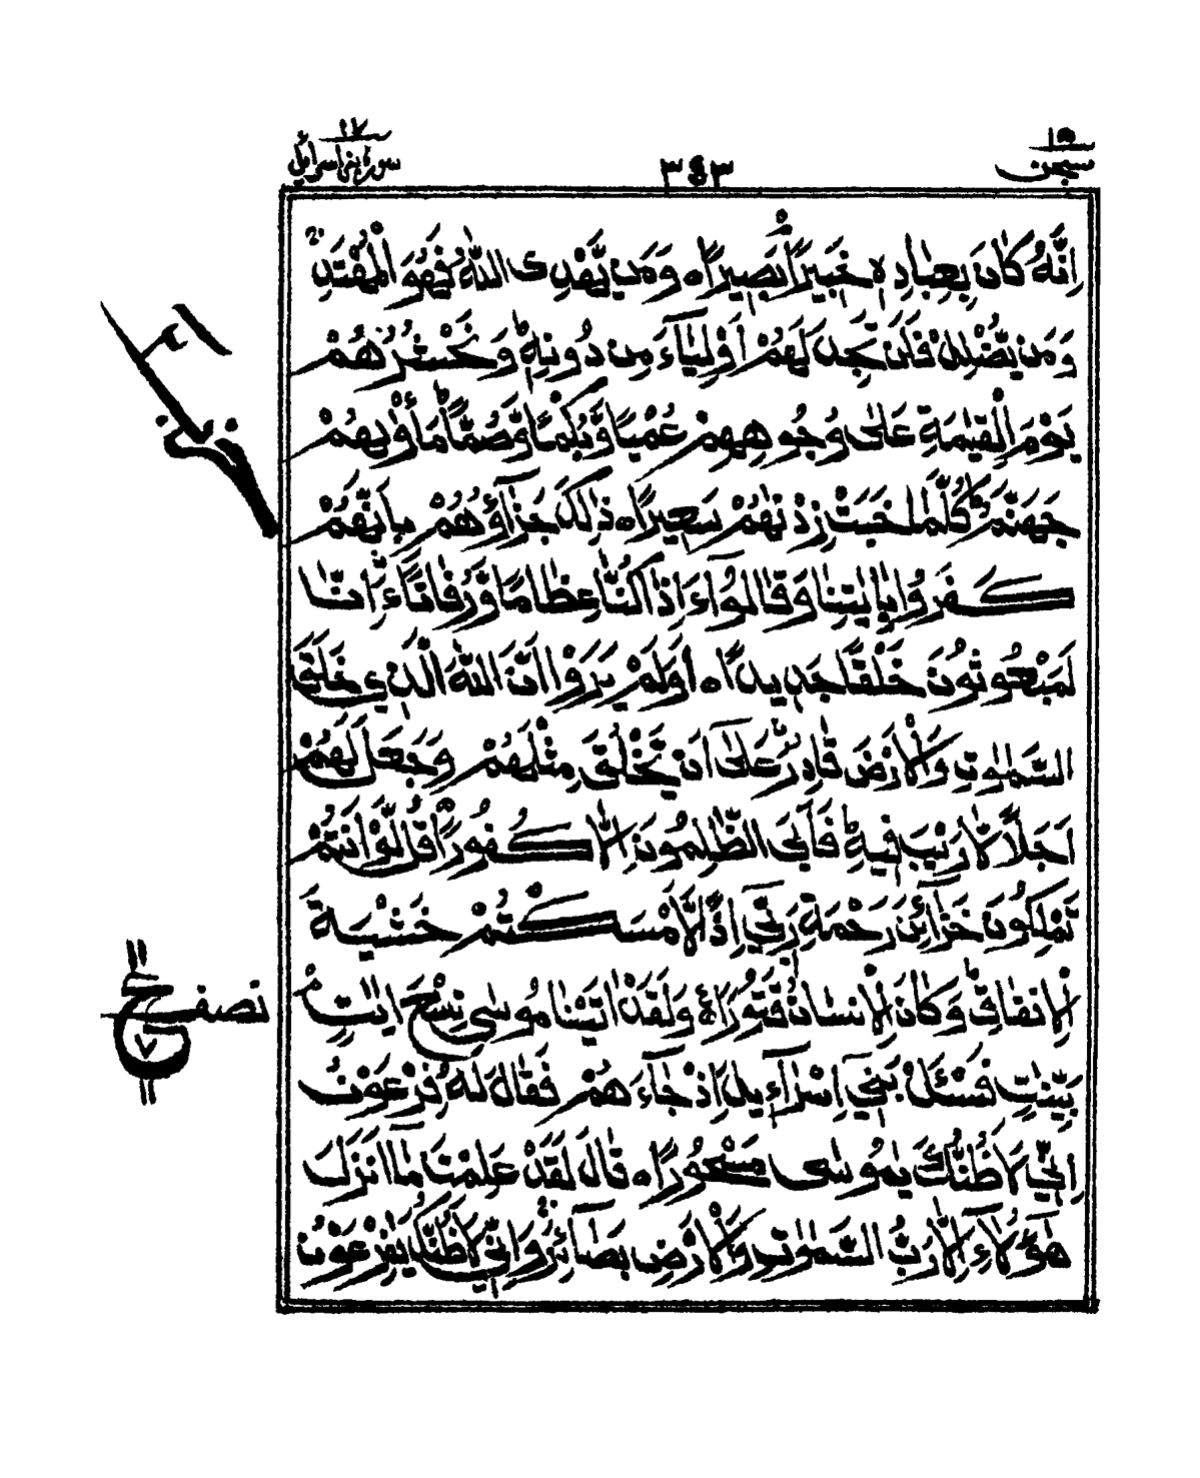 سبحن ١٥
٣٤٣
سورة بنی اسرائیل ١٧
اِنَّهٗ كَانَ بِعِبَادِهٖ خَبِيْرًۢا بَصِيْرًا ٥ وَمَنْ يَّهْدِ اللّٰهُ فَهُوَ الْمُهْتَدِ ۚ
وَمَنْ يُّضْلِلْ فَلَنْ تَجِدَ لَهُمْ اَوْلِيَآءَ مِنْ دُوْنِهٖ ؕ وَنَحْشُرُهُمْ
يَوْمَ الْقِيٰمَةِ عَلٰى وُجُوْهِهِمْ عُمْيًا وَّبُكْمًا وَّصُمًّا ؕ مَاْوٰىهُمْ
جَهَنَّمُ ؕ كُلَّمَا خَبَتْ زِدْنٰهُمْ سَعِيْرًا ٥ ذٰلِكَ جَزَآؤُهُمْ بِاَنَّهُمْ
كَفَرُوْا بِاٰيٰتِنَا وَقَالُوْٓا ءَاِذَا كُنَّا عِظَامًا وَّرُفَاتًا ءَاِنَّا
لَمَبْعُوْثُوْنَ خَلْقًا جَدِيْدًا ٥ اَوَلَمْ يَرَوْا اَنَّ اللّٰهَ الَّذِيْ خَلَقَ
السَّمٰوٰتِ وَالْاَرْضَ قَادِرٌ عَلٰٓى اَنْ يَّخْلُقَ مِثْلَهُمْ وَجَعَلَ لَهُمْ
اَجَلًا لَّا رَيْبَ فِيْهِ ؕ فَاَبَى الظّٰلِمُوْنَ اِلَّا كُفُوْرًا ٥ قُلْ لَّوْ اَنْتُمْ
تَمْلِكُوْنَ خَزَآئِنَ رَحْمَةِ رَبِّيْٓ اِذًا لَّاَمْسَكْتُمْ خَشْيَةَ
الْاِنْفَاقِ ؕ وَكَانَ الْاِنْسَانُ قَتُوْرًا ٥ وَلَقَدْ اٰتَيْنَا مُوْسٰى تِسْعَ اٰيٰتٍۢ
بَيِّنٰتٍ فَسْئَلْ بَنِيْٓ اِسْرَآءِيْلَ اِذْ جَآءَهُمْ فَقَالَ لَهٗ فِرْعَوْنُ
اِنِّيْ لَاَظُنُّكَ يٰمُوْسٰى مَسْحُوْرًا ٥ قَالَ لَقَدْ عَلِمْتَ مَآ اَنْزَلَ
هٰٓؤُلَآءِ اِلَّا رَبُّ السَّمٰوٰتِ وَالْاَرْضِ بَصَآئِرَ ۚ وَاِنِّيْ لَاَظُنُّكَ يٰفِرْعَوْنُ
نصف